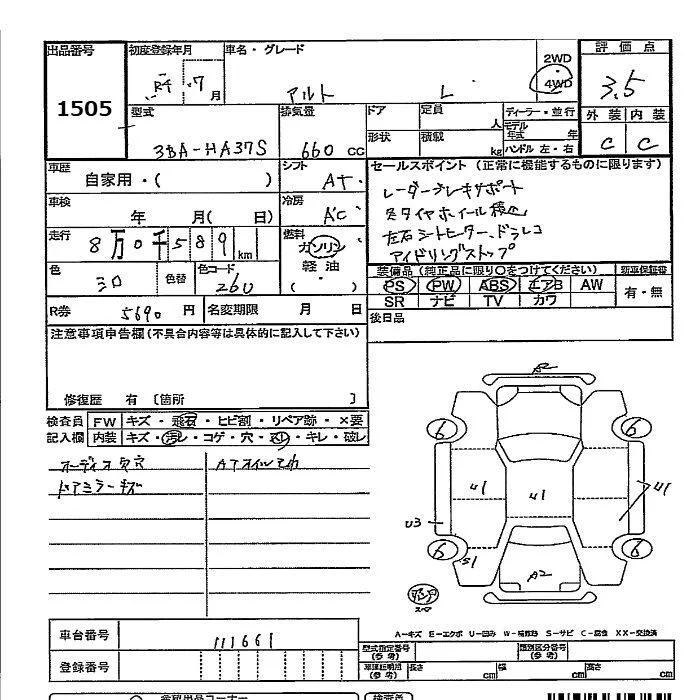 出品番号
1505
初度登録年月
7月
車名・グレード
アルト L
2WD
4WD
評価点
3.5
外装 内装
C C
型式
3BA-HA37S
排気量
660 cc
ドア
定員 人
形状
積載 kg
ディーラー・並行
モデル年式 年
ハンドル 左・右
車歴
自家用・( )
シフト
AT
車検
年 月( 日)
冷房
AC
走行
8万0千589km
燃料
ガソリン
軽油
( ・ )
色
シロ
色替
色コード
26U
セールスポイント (正常に機能するものに限ります)
レーダーブレーキサポート
冬タイヤホイール積込
左右シートヒーター、ドラレコ
アイドリングストップ
装備品 (純正品に限り○をつけてください)
新車保証書
PS PW ABS エアB AW
SR ナビ TV カワ
有・無
R券
5690 円
名変期限 月 日
後日品
注意事項申告欄(不具合内容等は具体的に記入して下さい)
修復歴 有 〔箇所 〕
検査員記入欄
FW キズ・飛石・ヒビ割・リペア跡・×要
内装 キズ・汚レ・コゲ・穴・スレ・キレ・破レ
オーディオ欠穴
ドアミラーキズ
A2
6
6
U1
U1
U1
U3
6
6
S1
A2
A-キズ E-エクボ U-凹み W-補修跡 S-サビ C-腐食 XX-交換済
車台番号
111661
登録番号
型式指定番号(参考)
類別区分番号(参考)
車庫証明用(参考)
長さ cm
幅 cm
高さ cm
検査員